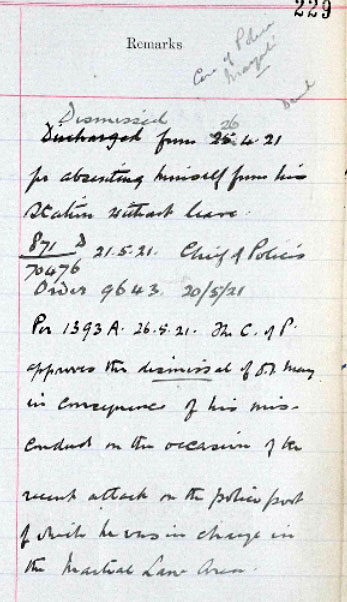 229
Remarks
Care of Police
Dismissed
Discharged from 25.4.21
26
for absenting himself from his
Station without leave.
871 D 21.5.21. Chief of Police's
70476
Order 9643. 20/5/21
Per 1393 A. 26.5.21. The C. of P.
approves the dismissal of
in consequence of his mis-
conduct on the occasion of the
recent attack on the police post
of which he was in charge in
the Martial Law Area.